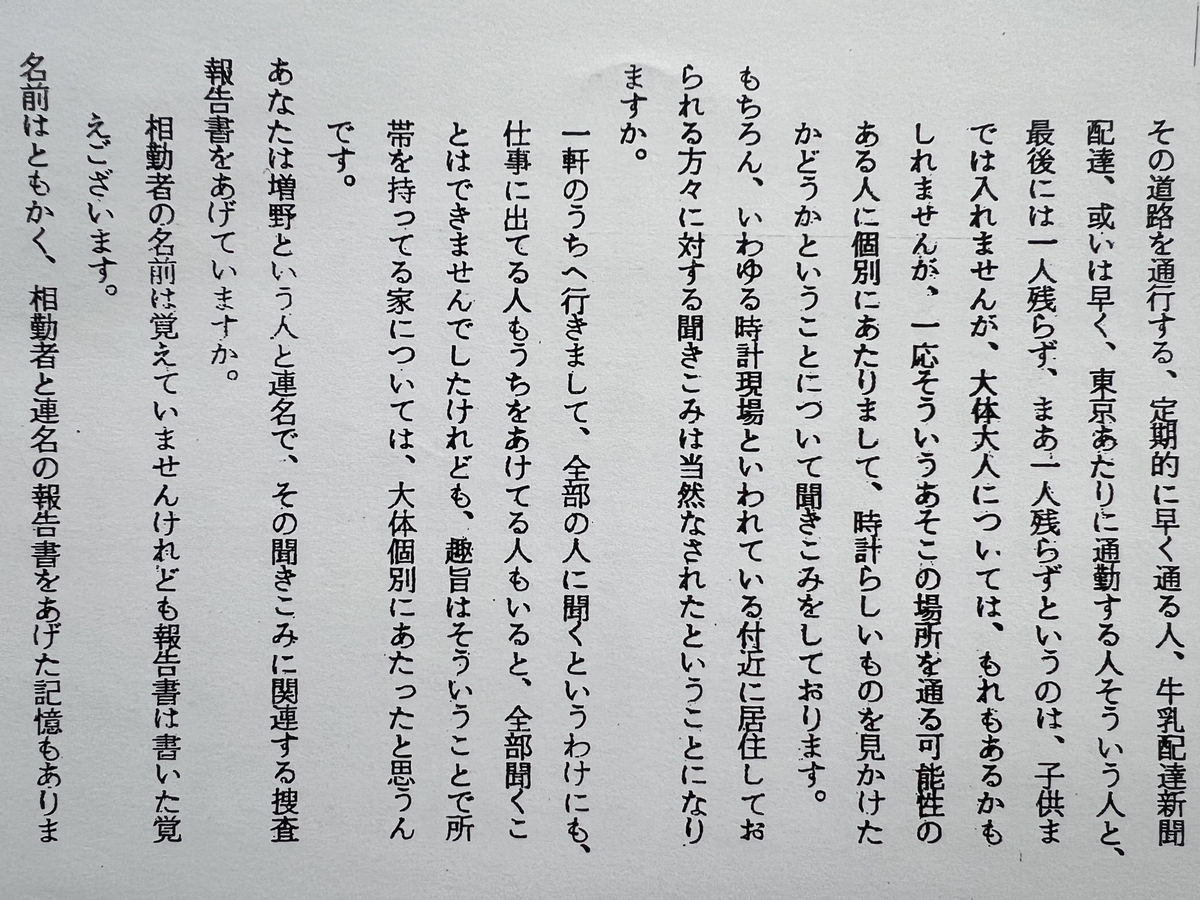 その道路を通行する、定期的に早く通る人、牛乳配達新聞
配達、或いは早く、東京あたりに通勤する人そういう人と、
最後には一人残らず、まあ一人残らずというのは、子供ま
では入れませんが、大体大人については、もれもあるかも
しれませんが、一応そういうあそこの場所を通る可能性の
ある人に個別にあたりまして、時計らしいものを見かけた
かどうかということについて聞きこみをしております。
もちろん、いわゆる時計現場といわれている付近に居住してお
られる方々に対する聞きこみは当然なされたということになり
ますか。
一軒のうちへ行きまして、全部の人に聞くというわけにも、
仕事に出てる人もうちをあけてる人もいると、全部聞くこ
とはできませんでしたけれども、趣旨はそういうことで所
帯を持ってる家については、大体個別にあたったと思うん
です。
あなたは増野という人と連名で、その聞きこみに関連する捜査
報告書をあげていますか。
相勤者の名前は覚えていませんけれども報告書は書いた覚
えございます。
名前はともかく、相勤者と連名の報告書をあげた記憶もありま